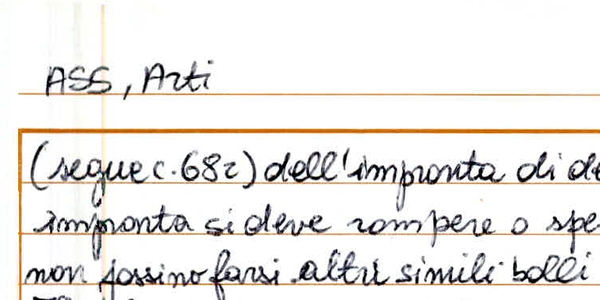 ASS, Arti
(segue c. 68r) dell'impronta di de
impronta si deve rompere o spe
non possino farsi altri simili bolli